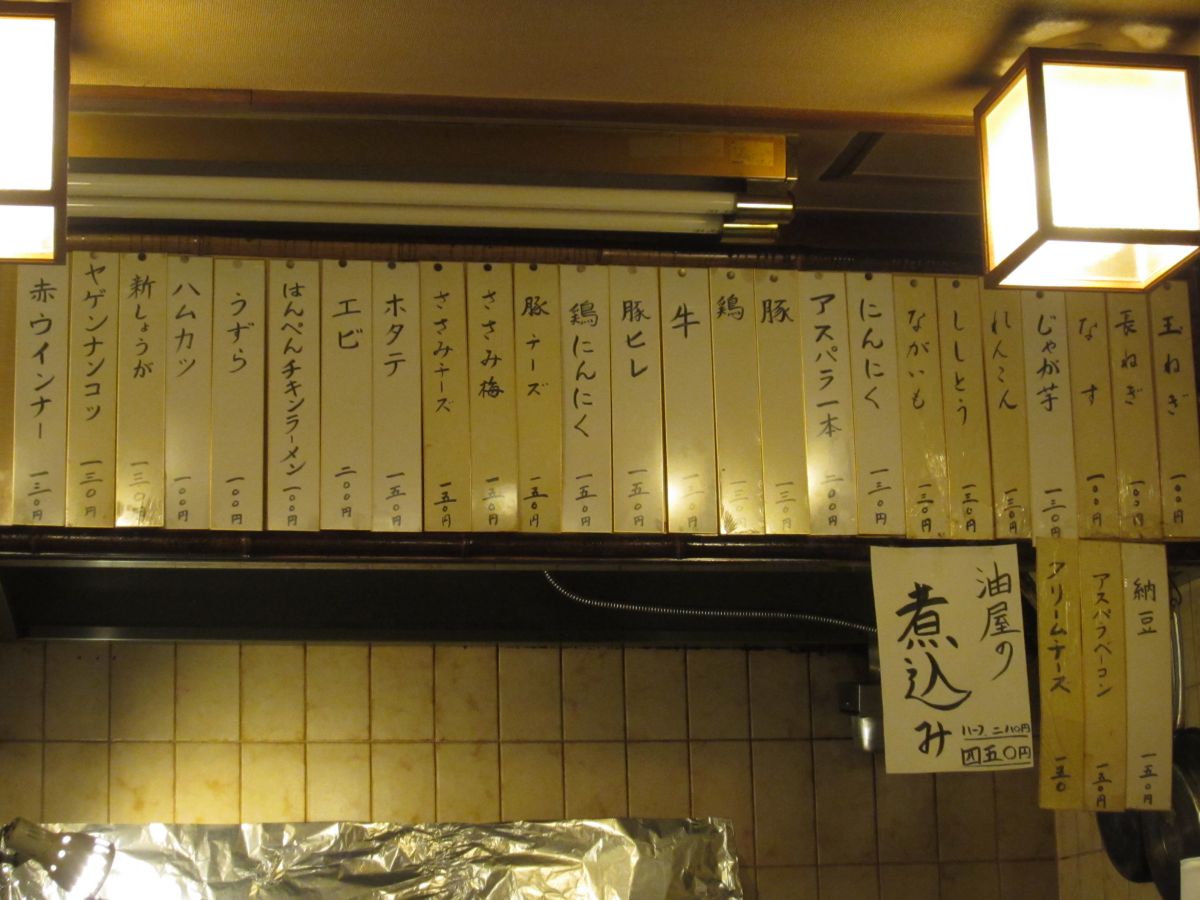 玉ねぎ 一〇〇円
長ねぎ 一〇〇円
なす 一〇〇円
じゃが芋 一三〇円
れんこん 一三〇円
ししとう 一三〇円
ながいも 一三〇円
にんにく 一三〇円
アスパラ一本 二〇〇円
豚 一三〇円
鶏 一三〇円
牛 一三〇円
豚ヒレ 一五〇円
鶏にんにく 一五〇円
豚チーズ 一五〇円
ささみ梅 一五〇円
ささみチーズ 一五〇円
ホタテ 一五〇円
エビ 二〇〇円
はんぺんチキンラーメン 一〇〇円
うずら 一〇〇円
ハムカツ 一〇〇円
新しょうが 一三〇円
ヤゲンナンコツ 一三〇円
赤ウインナー 一三〇円
納豆 一五〇円
アスパラベーコン 一五〇円
クリームチーズ 一五〇
油屋の
煮込み
ハーフ
四五〇円